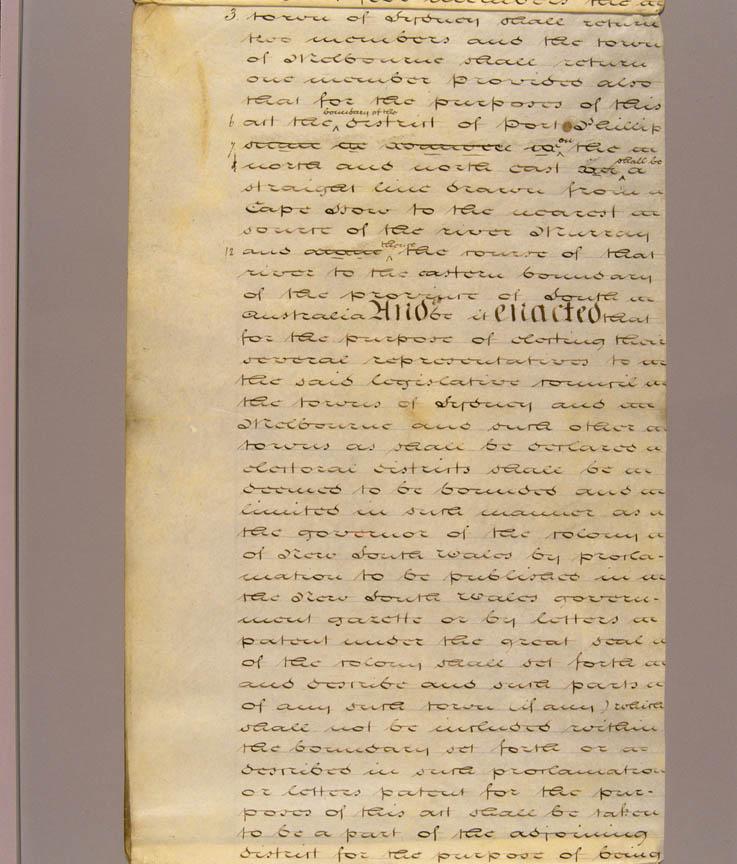 members the
3 town of Sydney shall return
two members and the town
of Melbourne shall return
one member provided also
that for the purposes of this
boundary of the
6 act the ^ district of Port Phillip
7 on the
north and north east ^ shall be a
straight line drawn from
Cape How to the nearest
source of the river Murray
12 and ^ thence the course of that
river to the eastern boundary
of the province of South
Australia And be it enacted that
for the purpose of electing their
several representatives to
the said legislative council
the towns of Sydney and
Melbourne and such other
towns as shall be declared
electoral districts shall be
deemed to be bounded and
limited in such manner as
the governor of the colony
of New South Wales by procla-
mation to be published in
the New South Wales govern-
ment gazette or by letters
patent under the great seal
of the colony shall set forth
and describe and such parts
of any such town (if any) which
shall not be included within
the boundary set forth or
described in such proclamation
or letters patent for the pur-
poses of this act shall be taken
to be a part of the adjoining
district for the purpose of being